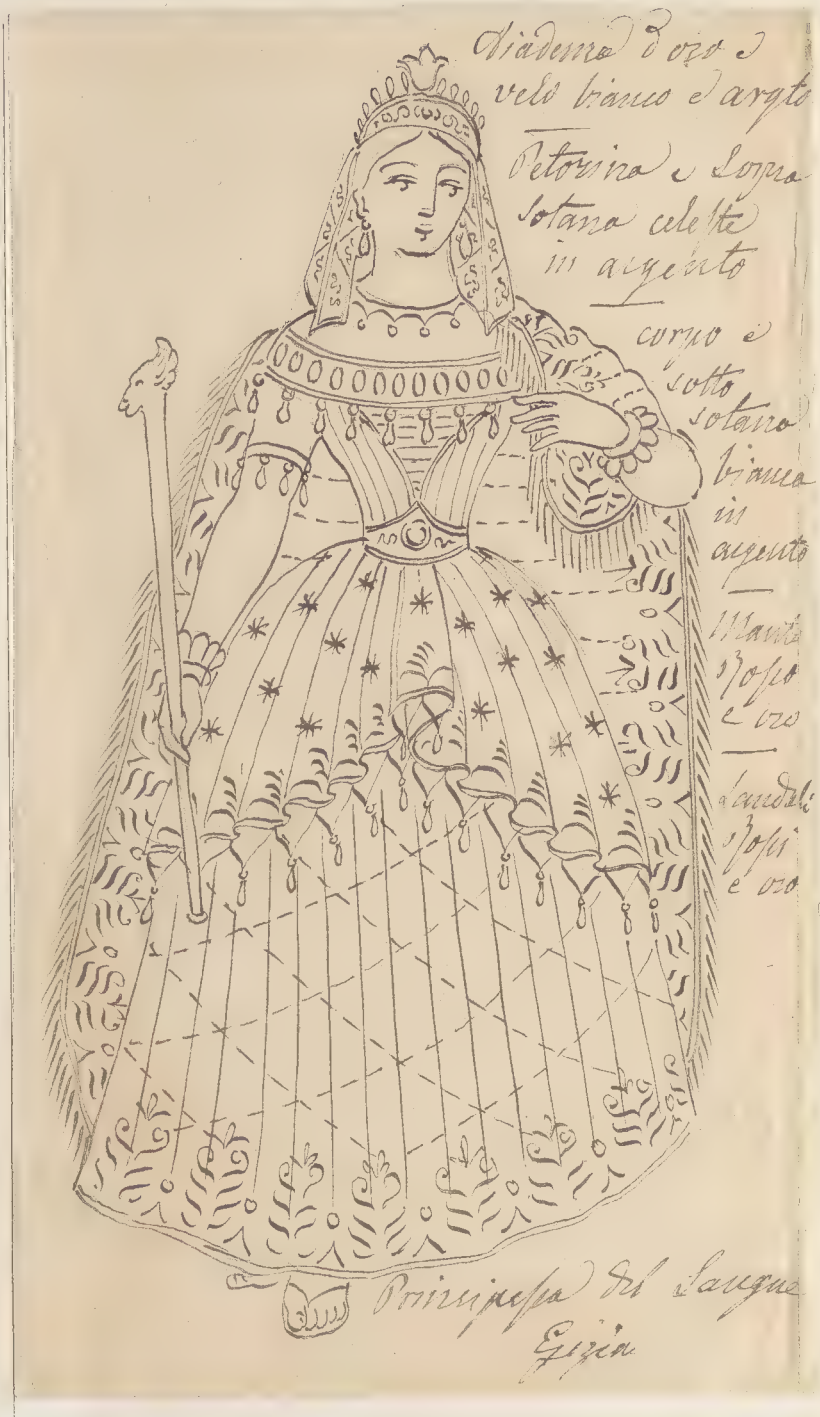 Diadema d'oro e
velo bianco e argto
Petorina e Sopra
sotana celeste
in argento
corpo e
sotto
sotana
bianca
in
argento
Manto
Rosso
e oro
Sandali
Rossi
e oro
Principessa del Sangue
Egizia